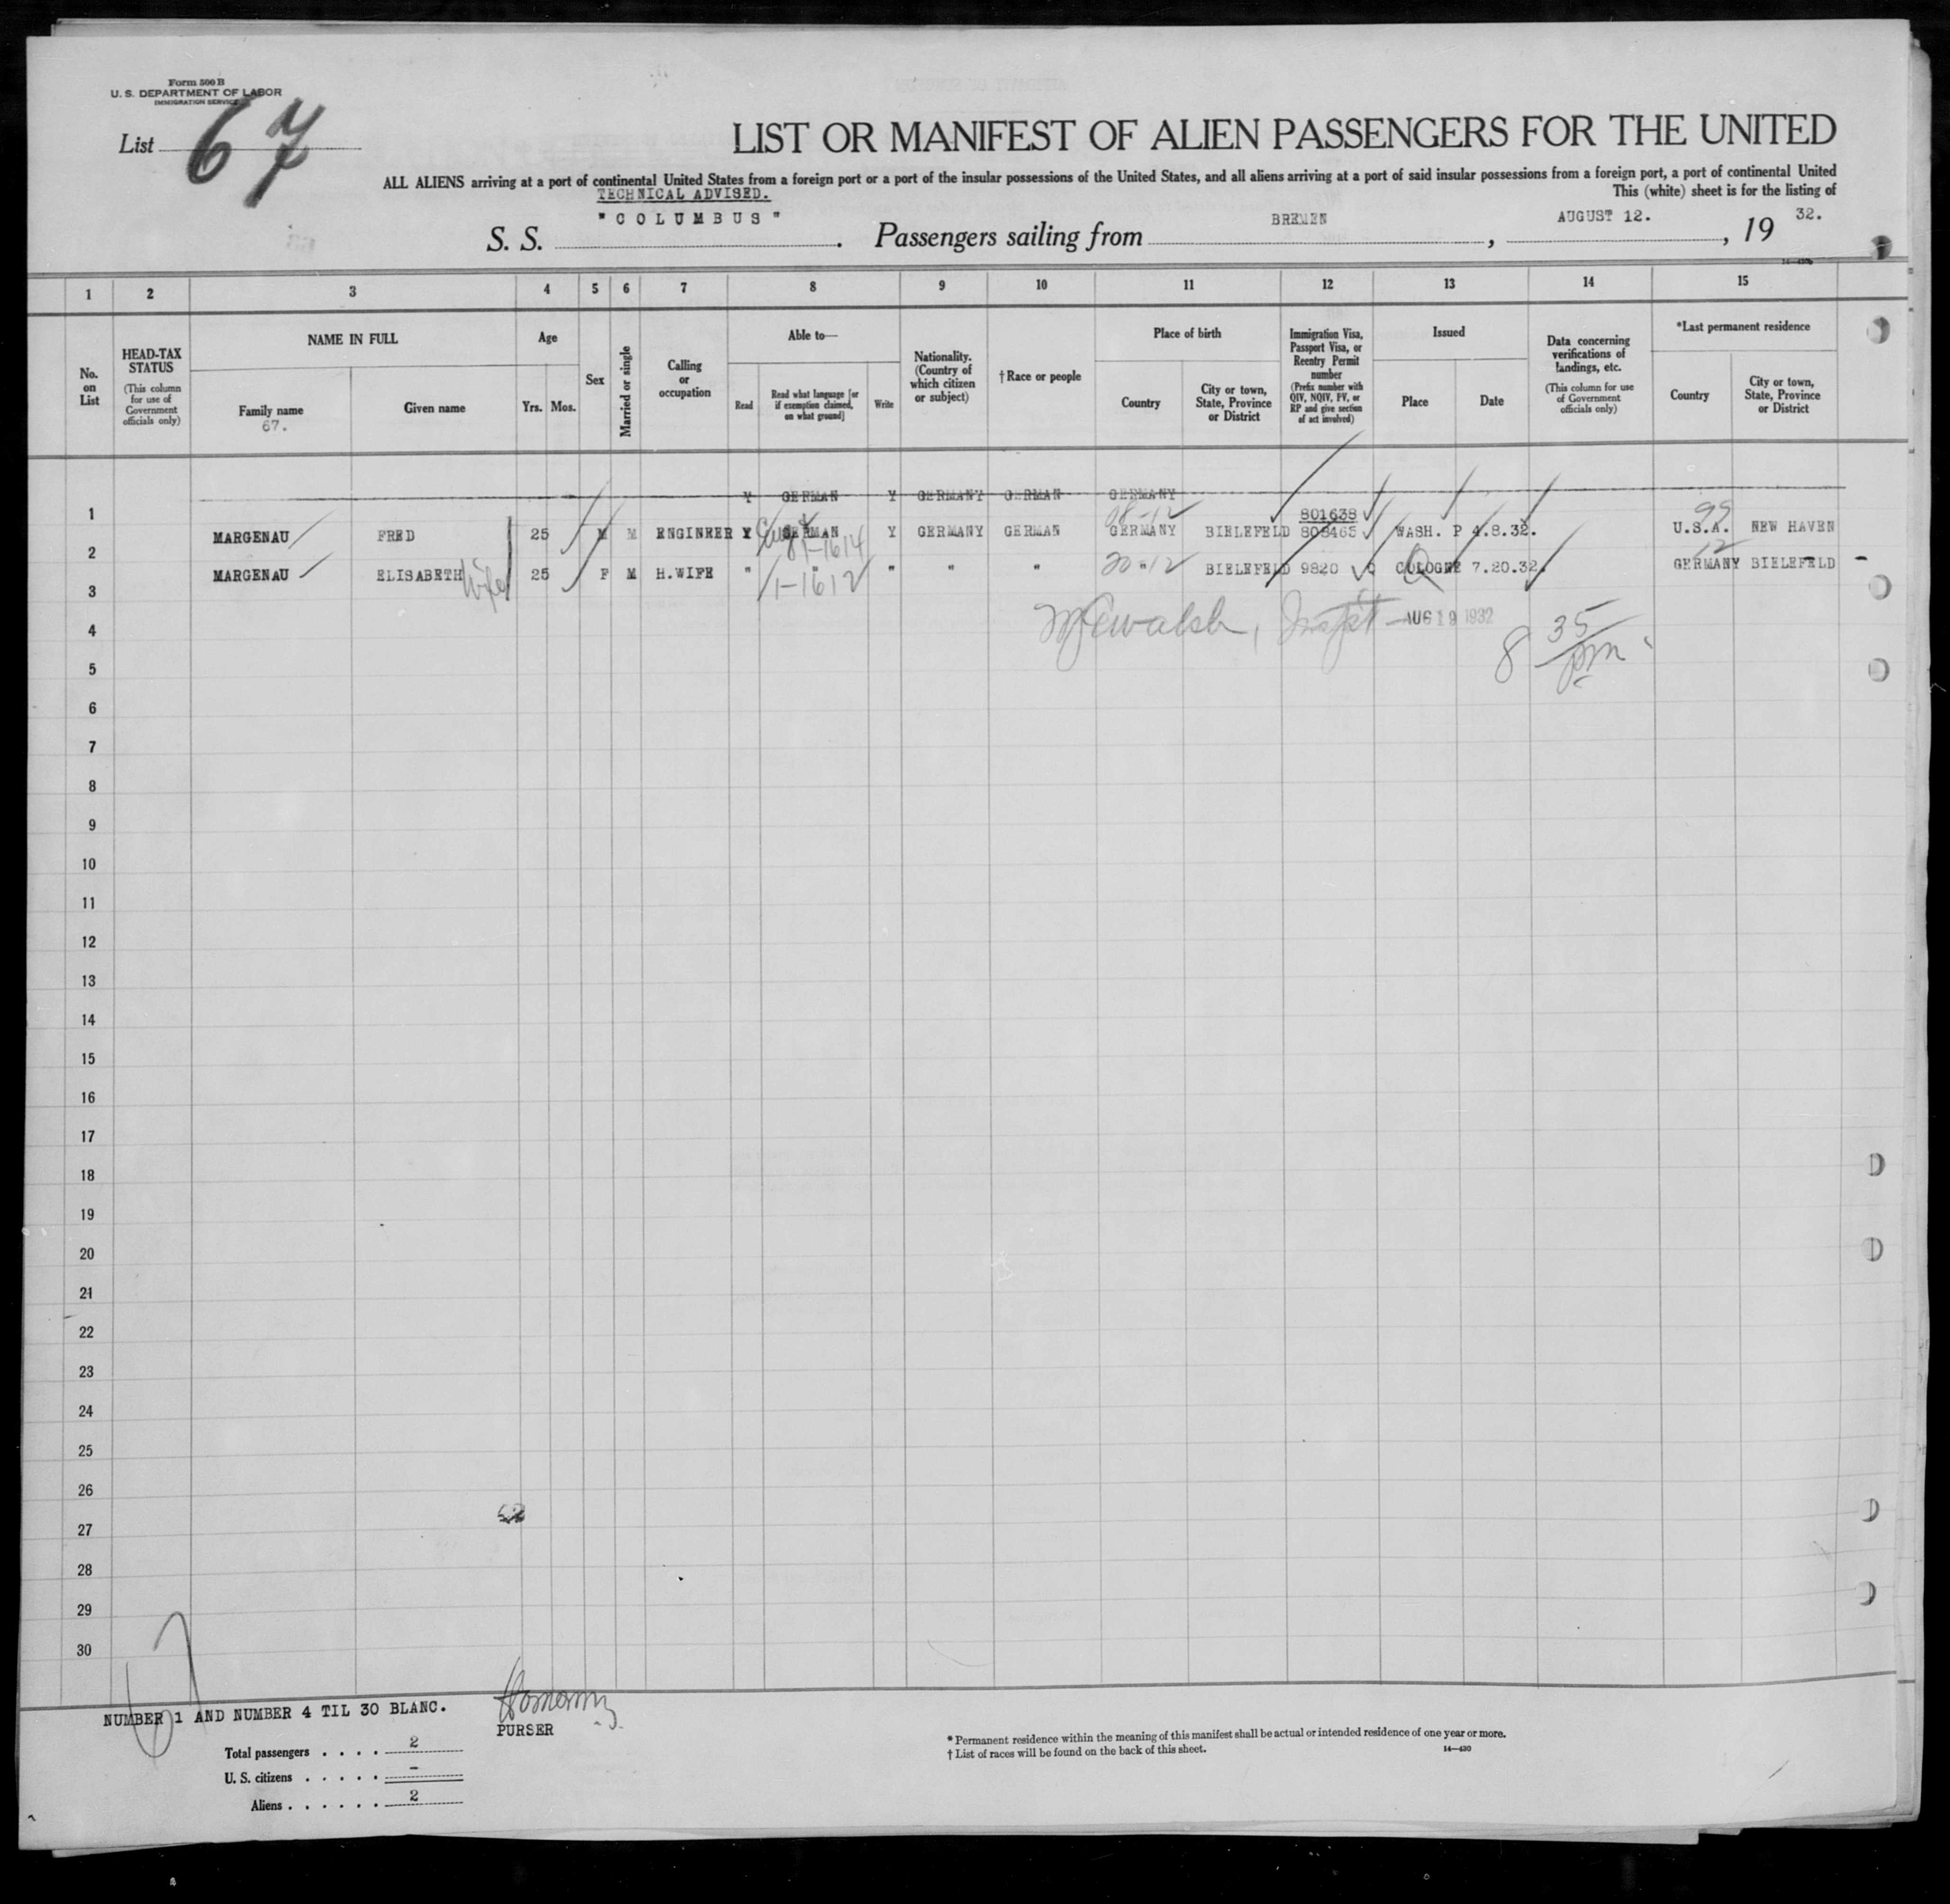 Form 500 B
U. S. DEPARTMENT OF LABOR
IMMIGRATION SERVICE
List 67
LIST OR MANIFEST OF ALIEN PASSENGERS FOR THE UNITED
ALL ALIENS arriving at a port of continental United States from a foreign port or a port of the insular possessions of the United States, and all aliens arriving at a port of said insular possessions from a foreign port, a port of continental United
TECHNICAL ADVISED.
This (white) sheet is for the listing of
S. S. "COLUMBUS". Passengers sailing from BREMEN, AUGUST 12., 19 32.
1 2 3 4 5 6 7 8 9 10 11 12 13 14 15
No. on List
HEAD-TAX STATUS (This column for use of Government officials only)
NAME IN FULL
Family name
67.
Given name
Age
Yrs. Mos.
Sex
Married or single
Calling or occupation
Able to—
Read
Read what language [or if exemption claimed, on what ground]
Write
Nationality. (Country of which citizen or subject)
†Race or people
Place of birth
Country
City or town, State, Province or District
Immigration Visa, Passport Visa, or Reentry Permit number (Prefix number with QIV, NQIV, PV, or RP and give section of act involved)
Issued
Place
Date
Data concerning verifications of landings, etc. (This column for use of Government officials only)
*Last permanent residence
Country
City or town, State, Province or District
1 Y GERMAN Y GERMANY GERMAN GERMANY
801638 99
2 MARGENAU FRED 25 M M ENGINEER Y GERMAN Y GERMANY GERMAN GERMANY BIELEFELD 808465 WASH. P 4.8.32. U.S.A. NEW HAVEN
1-1614 12
3 MARGENAU ELISABETH wife 25 F M H.WIFE " " " " " " BIELEFELD 9820 COLOGNE 7.20.32. GERMANY BIELEFELD -
1-1612 20 12
AUG 19 1932
8 35 pm
4
5
6
7
8
9
10
11
12
13
14
15
16
17
18
19
20
21
22
23
24
25
26
27
28
29
30
NUMBER 1 AND NUMBER 4 TIL 30 BLANC.
PURSER
Total passengers . . . . 2
U. S. citizens . . . . . -
Aliens . . . . . . 2
* Permanent residence within the meaning of this manifest shall be actual or intended residence of one year or more.
† List of races will be found on the back of this sheet.
14—430